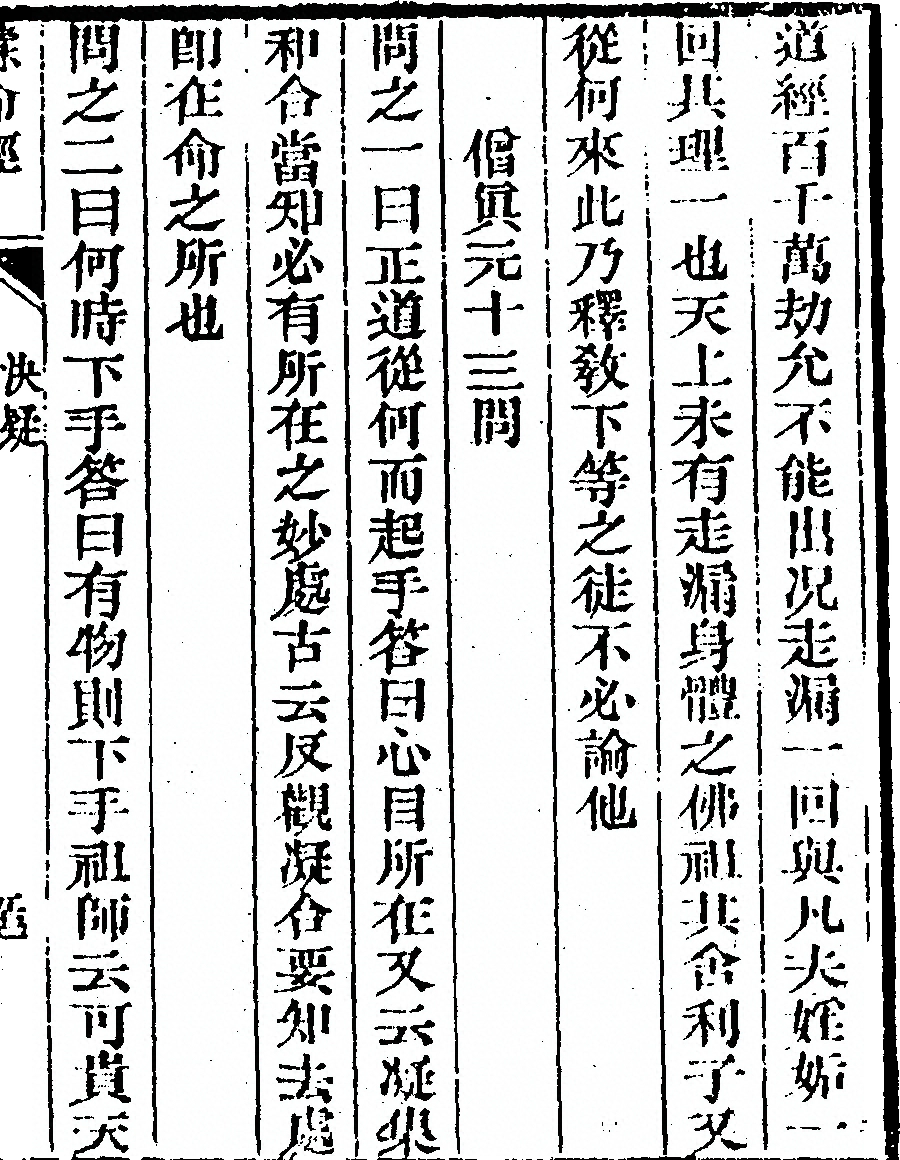 道經百千萬劫允不能出况走漏一回與凡夫姪姤一
回其理一也天上未有走漏身體之佛祖其舍利子又
從何來此乃釋教下等之徒不必論他
僧眞元十三問
問之一曰正道從何而起手答曰心目所在又云凝集
和合當知必有所在之妙處古云反觀凝合要知去處
卽在命之所也
問之二曰何時下手答曰有物則下手祖師云可貴天
决疑